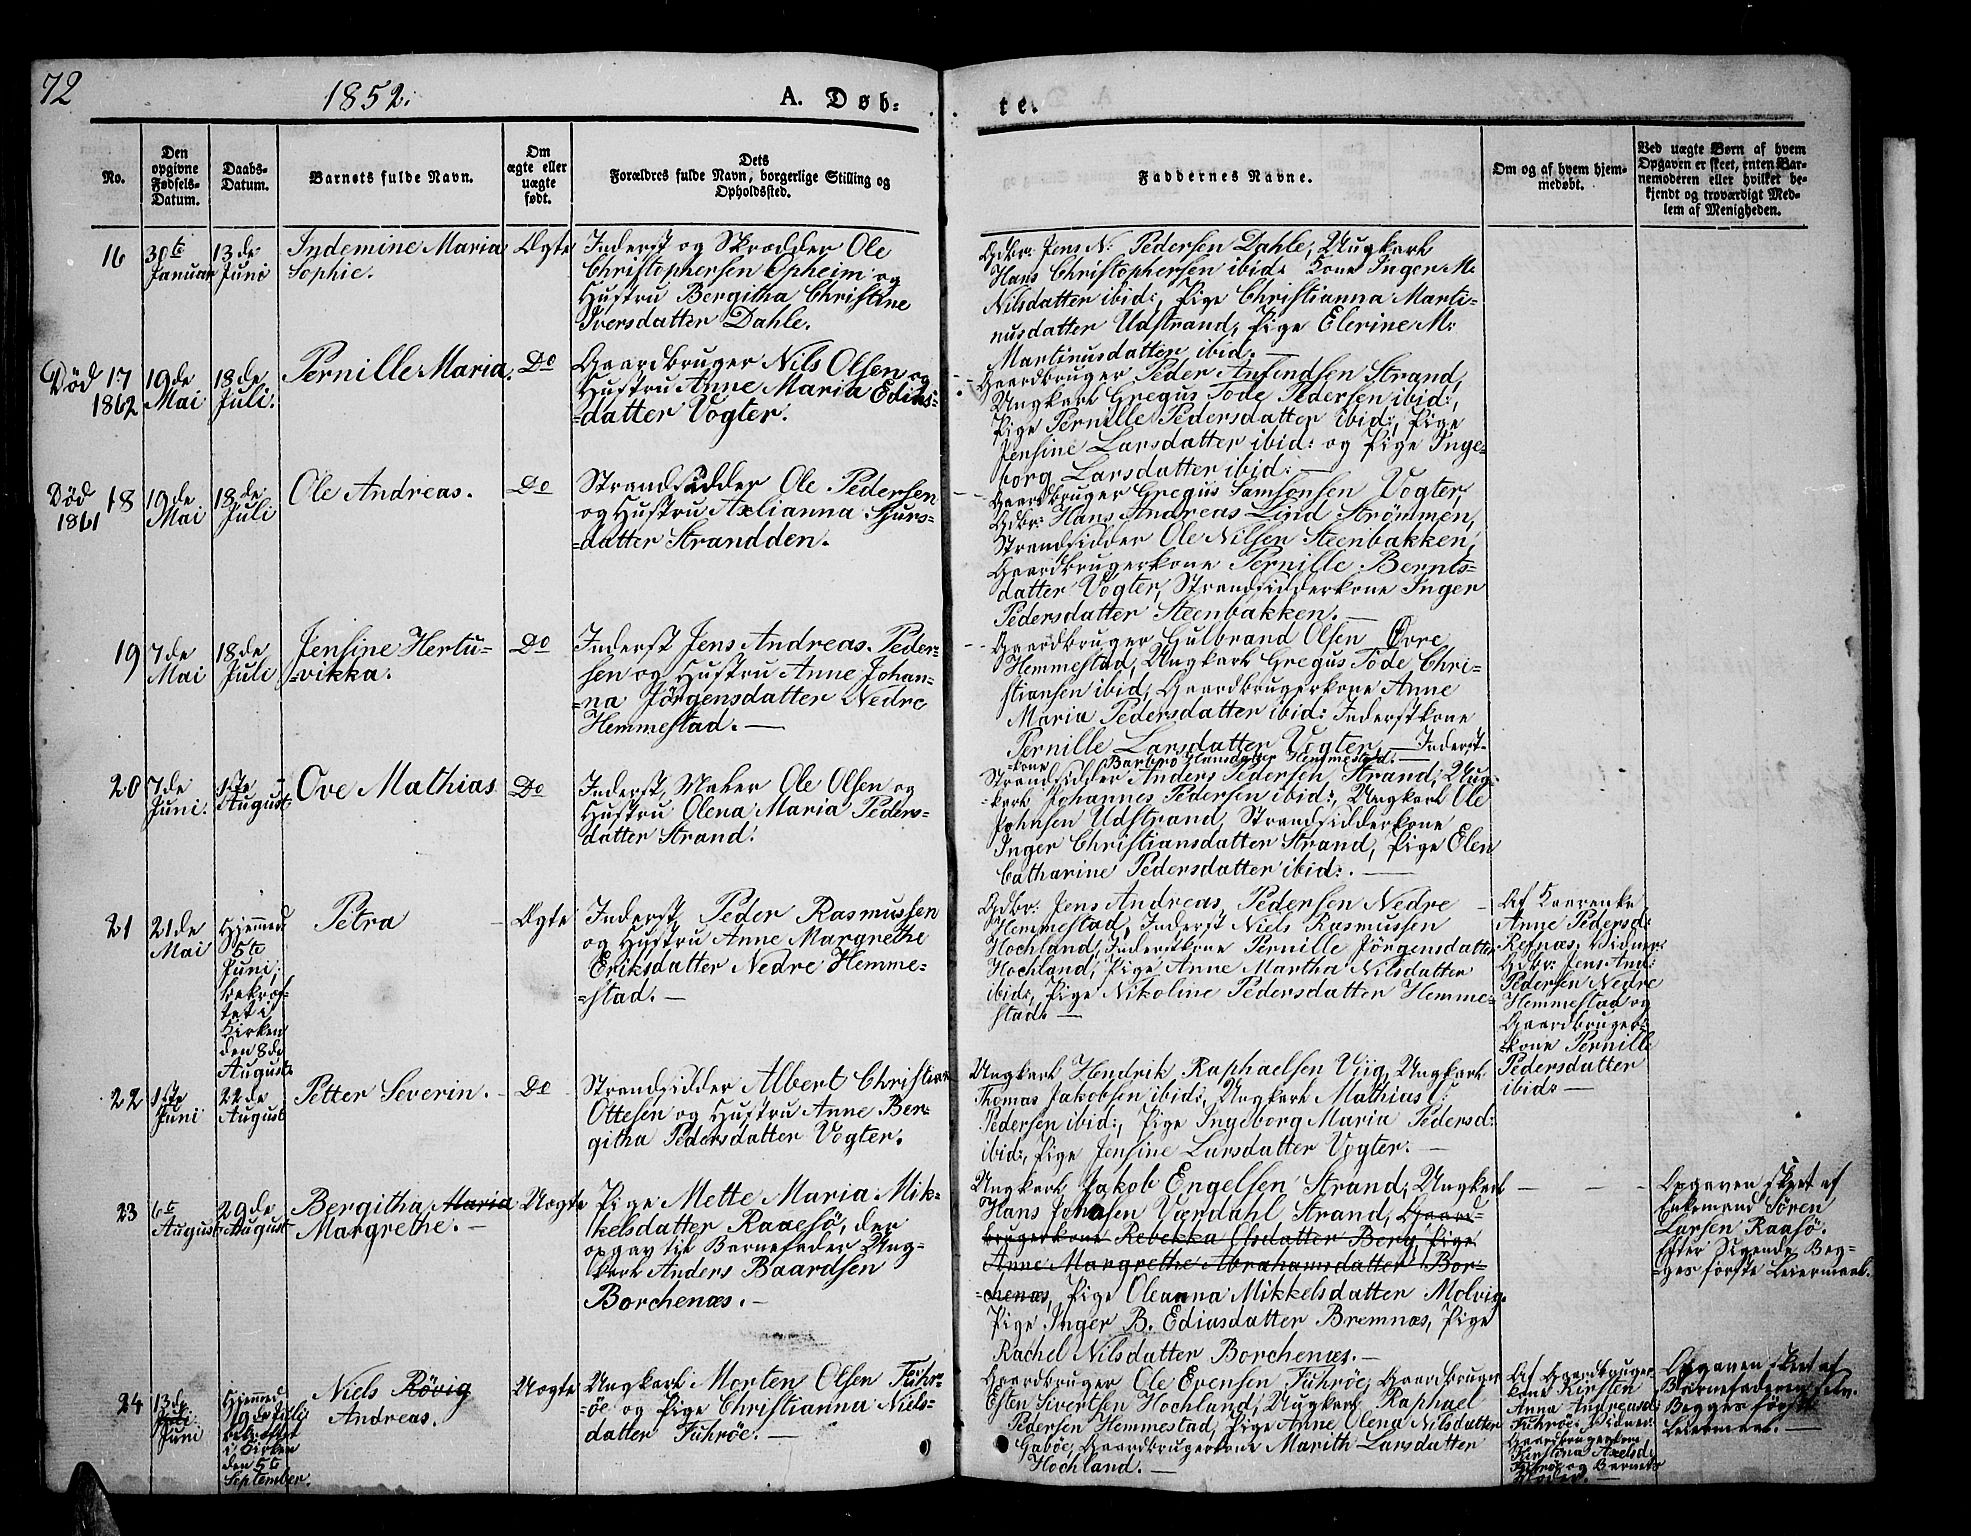 72
1852.
A. Døb-
te.
No.
Den
opgivne
Fødsels-
Datum.
Daabs-
Datum.
Barnets fulde Navn.
Om
ægte eller
uægte
født.
Dets
Forældres fulde Navn, borgerlige Stilling og
Opholdssted.
Faddernes Navne.
Om og af hvem hjem-
medøbt.
Ved uægte Børn af hvem
Opgaven er skeet, enten Bar-
nemoderen eller hvilket be-
kjendt og troværdigt Med-
lem af Menigheden.
16
30te
Januar
13de
Juni
Indemine Maria
Sophie.
Ægte
Inderst og Skrædder Ole
Christophersen Opheim og
Hustru Bergitha Christine
Iversdatter Dahle.
Gdbr: Jens N: Pedersen Dahle, Ungkarl
Hans Christophersen ibid: Kone Inger M:
Nilsdatter ibid:, Pige Christianna Marti-
nusdatter Udstrand, Pige Elerine M:
Martinusdatter ibid. —
Død 17
1862
19de
Mai
18de
Juli.
Pernille Maria.
Do
Gaardbruger Nils Olsen og
Hustru Anne Maria Edias-
=datter Vogter.
Gaardbruger Peder Anfindsen Strand,
Ungkarl Gregus Tode Pedersen ibid:,
Pige Pernille Pedersdatter ibid:, Pige
Jensine Larsdatter ibid: og Pige Inge-
borg Larsdatter ibid: —
Død 18
1861
19de
Mai
18de
Juli
Ole Andreas.
Do
Strandsidder Ole Pedersen
og Hustru Axlianna Sjurs-
=datter Strandden.
Gaardbruger Gregus Samsonsen Vogter,
Gdbr: Hans Andreas Lind Strømmen,
Strandsidder Ole Nilsen Steenbakken,
Gaardbrugerkone Pernille Bernts-
datter Vogter, Strandsidderkone Inger
Pedersdatter Steenbakken. —
19
7de
Mai
18de
Juli
Jensine Hertu-
=vikka.
Do
Inderst Jens Andreas Peder-
sen og Hustru Anne Johan-
=na Jørgensdatter Nedre
Hemmestad. —
Gaardbruger Gulbrand Olsen Øvre
Hemmestad, Ungkarl Gregus Tode Chri-
stiansen ibid, Gaardbrugerkone Anne
Maria Pedersdatter ibid: Inderstkone
Pernille Larsdatter Vogter, — Inderst-
kone Barbro Hansdatter Hemmestad. —
20
7de
Juni.
1ste
August
Ove Mathias
Do
Inderst, Maler Ole Olsen og
Hustru Olena Maria Peders-
datter Strand.
Strandsidder Anders Pedersen Strand, Ung-
=karl Johannes Pedersen ibid:, Ungkarl Ole
Johnsen Udstrand, Strandsidderkone
Inger Christiansdatter Strand, Pige Elen
Catharine Pedersdatter ibid:. —
21
21de
Mai
Hjemmed
5te
Juni,
bekræf-
tet i
Kirken
den 8de
August
Petra
Ægte
Inderst, Peder Rasmussen
og Hustru Anne Margrethe
Eriksdatter Nedre Hemme-
=stad. —
Gdbr: Jens Andreas Pedersen Nedre
Hemmestad, Inderst Niels Rasmussen
Hochland, Inderstkone Pernille Jørgensdatter
Hochland, Pige Anne Martha Nilsdatter
ibid:, Pige Nikoline Pedersdatter Hemme-
stad. —
Af Kaarenke
Anne Pedersd:
Refnæs. Vidner
Gdbr: Jens And:
Pedersen Nedre
Hemmestad og
Gaardbruger-
=kone Pernille
Pedersdatter
ibid: —
22
1ste
Juni
22de
August
Petter Severin.
Do
Strandsidder Albert Christian
Ottesen og Hustru Anne Ber-
githa Pedersdatter Vogter.
Ungkarl Hendrik Raphaelsen Viig, Ungkarl
Thomas Jakobsen ibid:, Ungkarl Mathias C:
Pedersen ibid:, Pige Ingeborg Maria Pedersd:
ibid:, Pige Jensine Larsdatter Vogter. —
23
6te
August
29de
August
Bergitha Maria
Margrethe. —
Uægte
Pige Mette Maria Mik-
kelsdatter Raaesø, der
opgav til Barnefader Ung-
karl Anders Baardsen
Borchenæs. —
Ungkarl Jakob Engelsen Strand, Ungkarl
Hans Johnsen Værdahl Strand, Gaard-
brugerkone Rebekka Olsdatter Berg, Pige
Anne Margrethe Abrahamsdatter Bor-
=chenæs, Pige Oleanna Mikkelsdatter Molvig.
Pige Inger B. Ediasdatter Bremnæs, Pige
Rachel Nilsdatter Borchenæs. —
Opgaven skeet af
Enkemand Søren
Larsen Raasø.
Efter Sigende Beg-
ges første Leiermaal.
24
13de
Juli
Juni
Hjemmed
19de Juli
bekræftet
i Kirken
den 5te
September.
Niels Røvig
Andreas.
Uægte
Ungkarl Morten Olsen Fuhr-
=øe og Pige Christianna Niels-
datter Fuhrøe. —
Gaardbruger Ole Evensen Fuhrøe, Gaardbruger
Esten Sivertsen Hochland, Ungkarl Raphael
Pedersen Hemmestad, Pige Anne Olena Nilsdatter
Gabøe, Gaardbrugerkone Marith Larsdatter
Hochland. —
Af Gaardbruger-
kone Kirsten
Anna Andreasd:
Fuhrøe, Vidner
Gaardbrugerkone
Kirstina Axelsd:
Fuhrøe og Barnets
Moder. —
Opgaven skeet af
Barnefaderen selv.
Begges første
Leiermaal. —